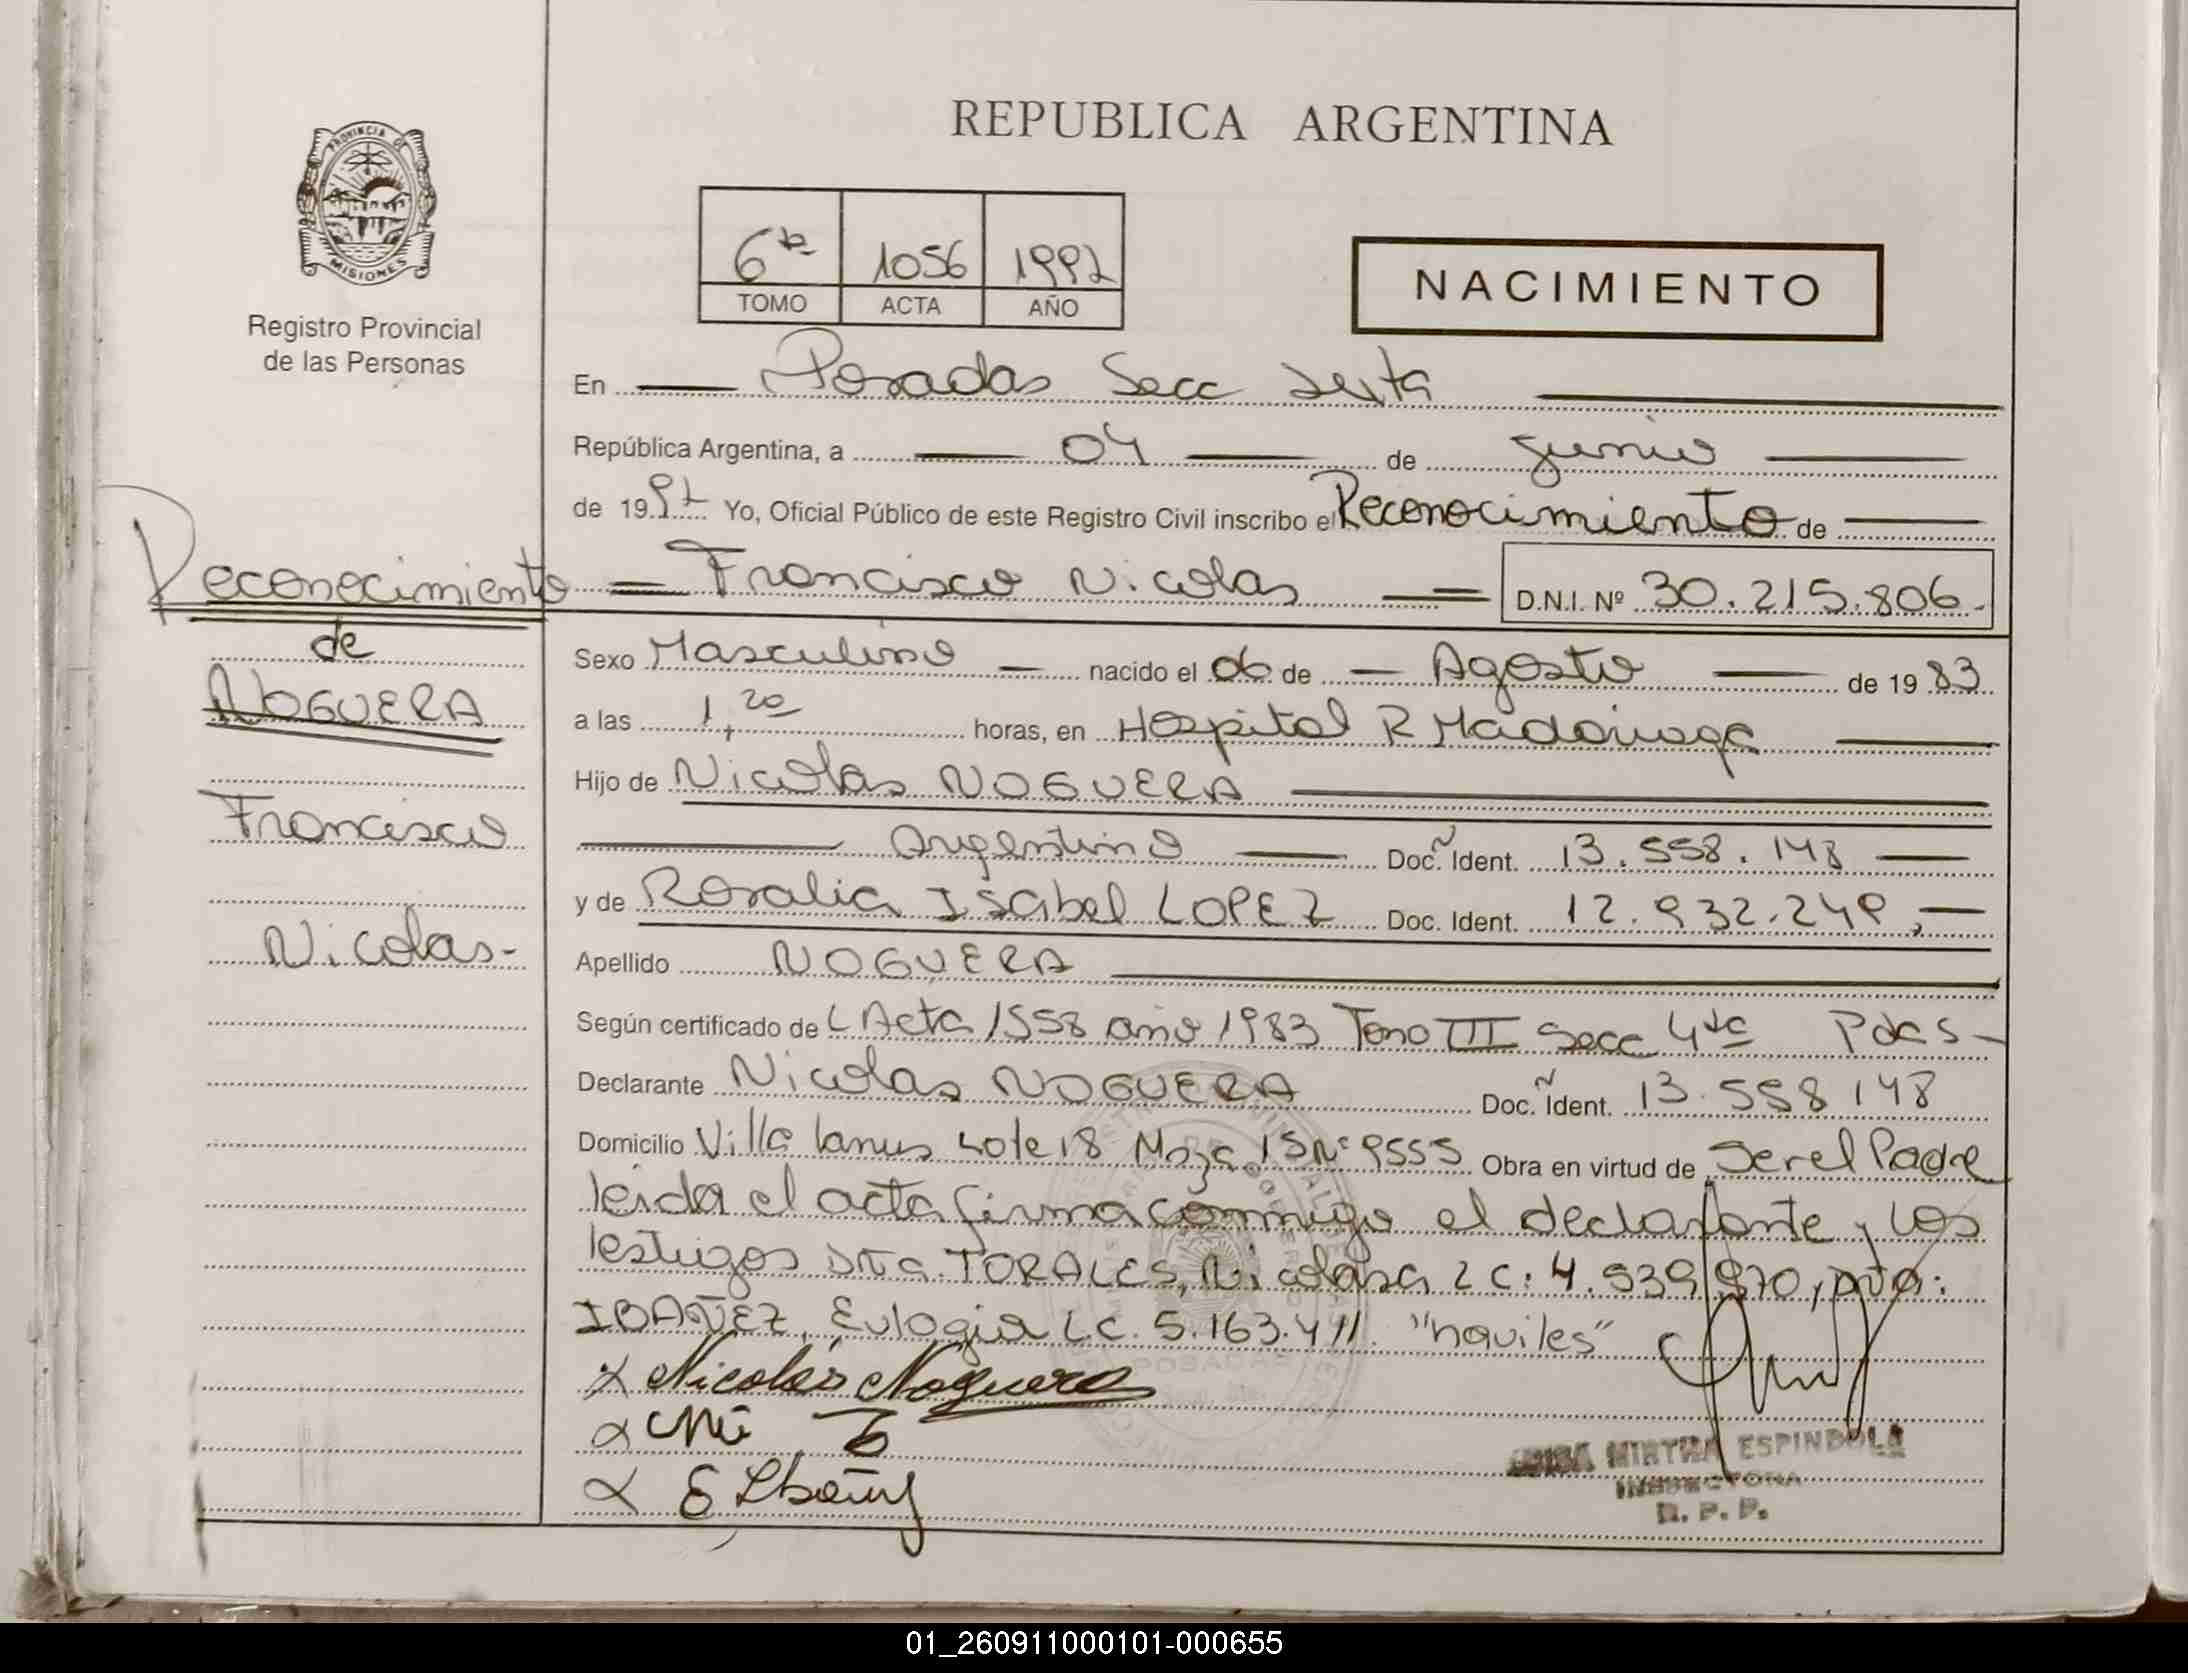 REPUBLICA ARGENTINA
PROVINCIA DE
MISIONES
Registro Provincial
de las Personas
6ta 1056 1992
TOMO ACTA AÑO
NACIMIENTO
En Posadas Secc Sexta
República Argentina, a 04 de junio
de 1992 Yo, Oficial Público de este Registro Civil inscribo el Reconocimiento de
Francisco Nicolas D.N.I. Nº 30.215.806.-
Reconocimiento
de
NOGUERA
Francisco
Nicolas-
Sexo Masculino nacido el 06 de Agosto de 1983
a las 1,20 horas, en Hospital R Madariaga
Hijo de Nicolas NOGUERA
Argentino Doc. Ident. 13.558.148
y de Rosalia Isabel LOPEZ Doc. Ident. 12.932.249,-
Apellido NOGUERA
Según certificado de L Acta 1558 año 1983 Tomo III Secc 4ta Pdas-
Declarante Nicolas NOGUERA Doc. Ident. 13.558148
Domicilio Villa Lanus Lote 18 Mza 15 Nº 9555 Obra en virtud de Ser el Padre
leida el acta firma conmigo el declarante y los
testigos Dña. TORALES, Nicolasa L C: 4.939.970, Dña:
IBAÑEZ, Eulogia L.C. 5.163.411. "haviles"
x Nicolás Noguera
x E Ibañez
MIRTHA ESPINDOLA
INSPECTORA
R. P. P.
POSADAS
01_260911000101-000655